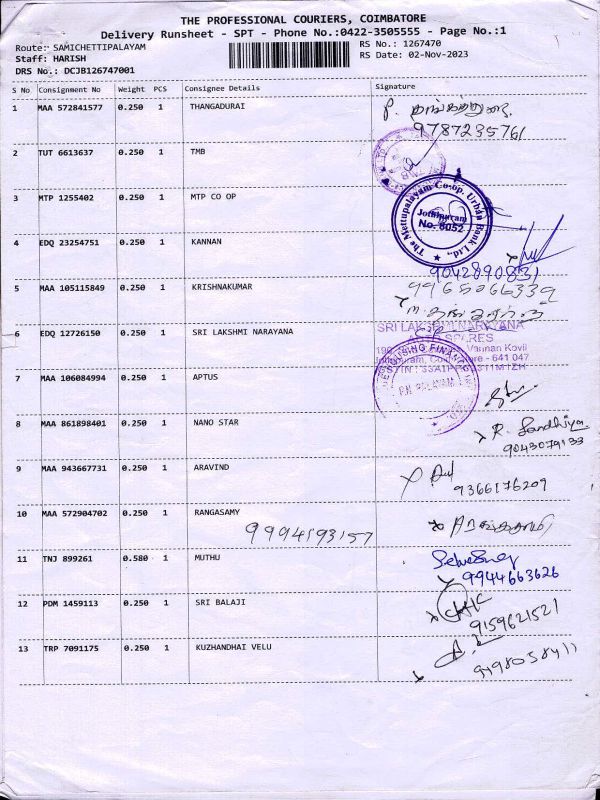 THE PROFESSIONAL COURIERS, COIMBATORE
Delivery Runsheet - SPT - Phone No.:0422-3505555 - Page No.:1
Route: SAMICHETTIPALAYAM
RS No.: 1267470
Staff: HARISH
RS Date: 02-Nov-2023
DRS No.: DCJB126747001
S No Consignment No Weight PCS Consignee Details Signature
1 MAA 572841577 0.250 1 THANGADURAI P. தங்கத்துரை
9787235761
2 TUT 6613637 0.250 1 TMB
TMB
3 MTP 1255402 0.250 1 MTP CO OP
The Mettupalayam Co-op. Urban Bank Ltd.,
Jothipuram
No. 6052
4 EDQ 23254751 0.250 1 KANNAN
9042890831
5 MAA 105115849 0.250 1 KRISHNAKUMAR 9965066339
6 EDQ 12726150 0.250 1 SRI LAKSHMI NARAYANA
SRI LAKSHMI NARAYANA
Vannan Kovil
Jothipuram, Coimbatore - 641 047
7 MAA 106084994 0.250 1 APTUS
HOUSING FINANCE
P.N. PALAYAM
8 MAA 861898401 0.250 1 NANO STAR R. Sandhiya
9043079133
9 MAA 943667731 0.250 1 ARAVIND
9366176209
10 MAA 572904702 0.250 1 RANGASAMY
9994593157
11 TNJ 899261 0.580 1 MUTHU
9944663626
12 PDM 1459113 0.250 1 SRI BALAJI
9159621521
13 TRP 7091175 0.250 1 KUZHANDHAI VELU